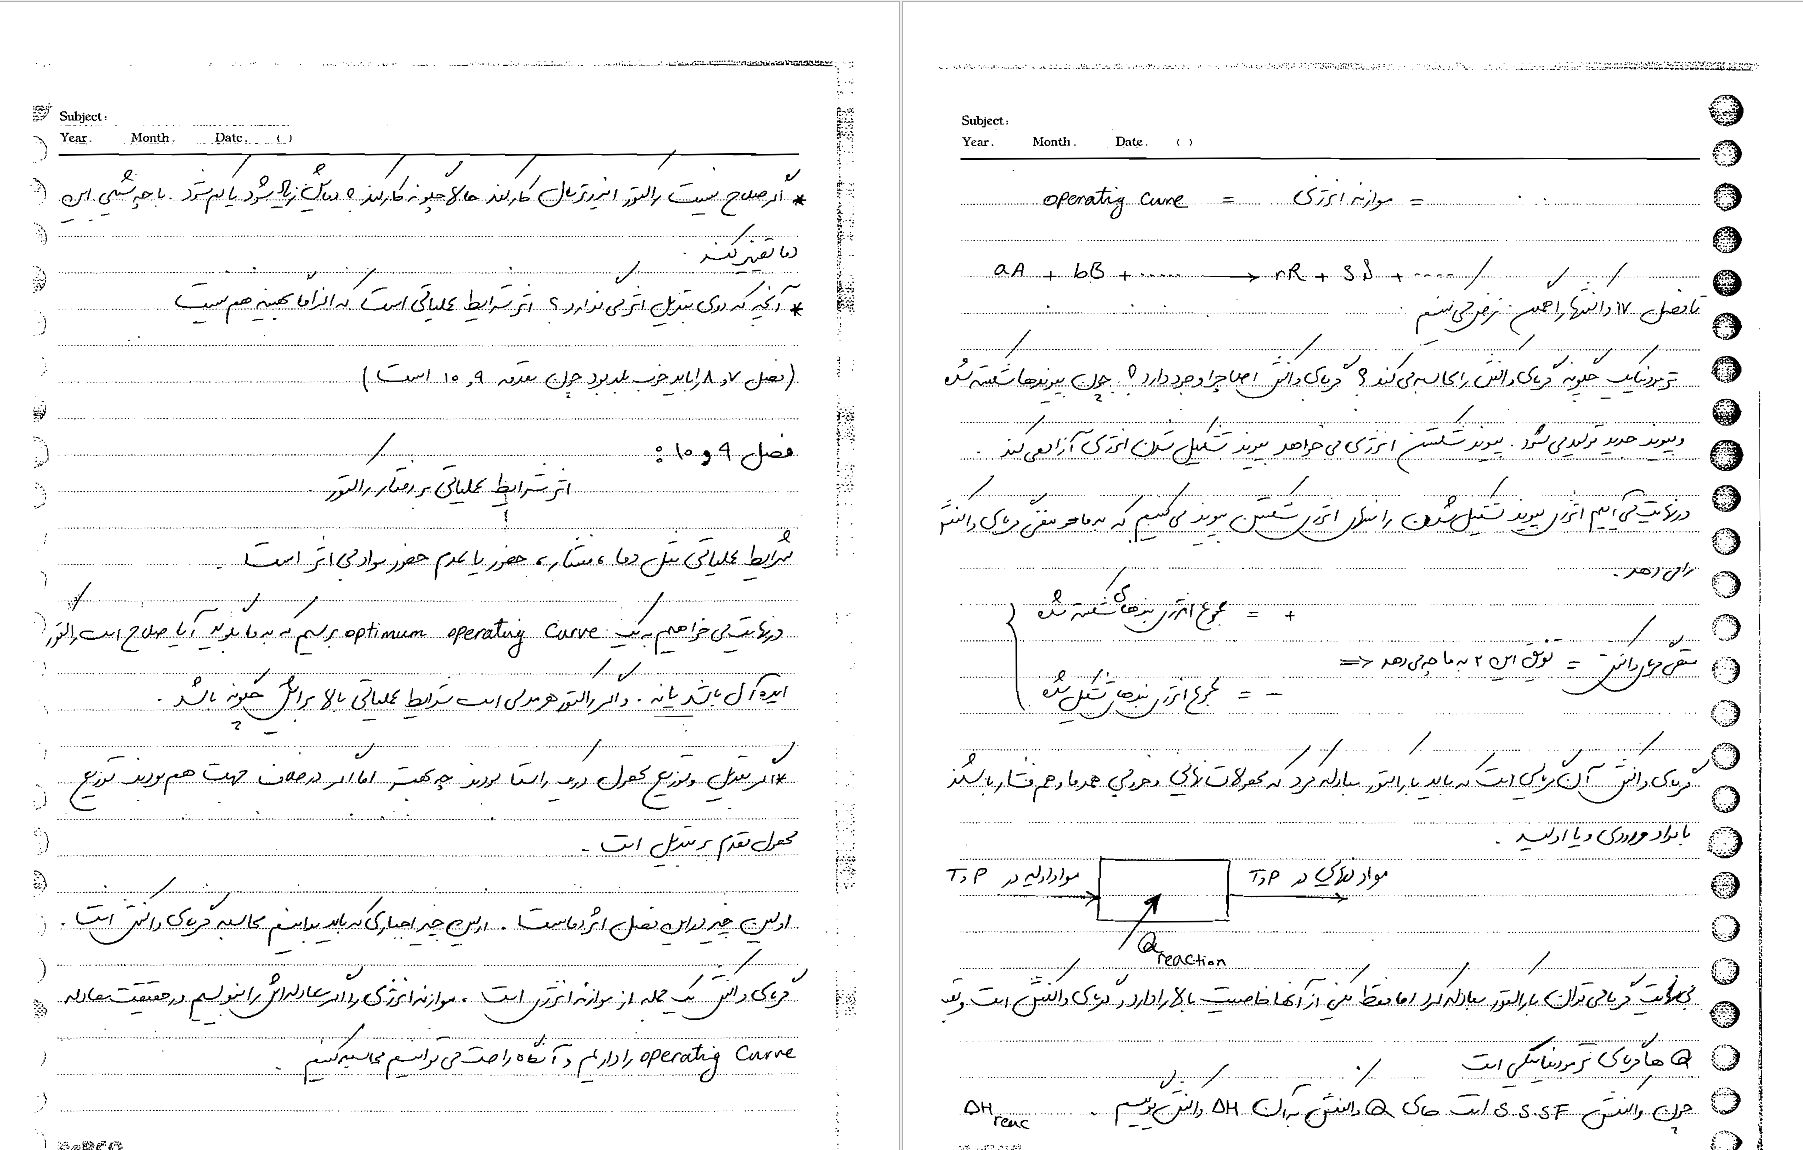 Subject:
Year. Month. Date. ( )
* اگر صلاح نیست راکتور ایزوترمال کار کند حالا چگونه کار کند؟ دمایش زیاد شود یا کم شود. با چه شیبی این
دما تغییر کند.
* آنچه که روی تبدیل اثر می گذارد؟ اثر شرایط عملیاتی است که الزاماً بهینه هم نیست
(فصل ۷ و ۸ را باید خوب بلد بود چون مقدمه ۹ و ۱۰ است)
فصل ۹ و ۱۰ :
اثر شرایط عملیاتی بر رفتار راکتور.
شرایط عملیاتی مثل دما، فشار، حضور یا عدم حضور مواد بی اثر است.
در نهایت می خواهیم به یک optimum operating Curve برسیم که به ما بگوید آیا صلاح است راکتور
ایده آل باشد یا نه. و اگر راکتور هر مدلی است شرایط عملیاتی بالا برایش چگونه باشد.
؟
* اگر تبدیل و توزیع محصول در یک راستا بودند چه بهتر اما اگر در خلاف جهت هم بودند توزیع
محصول مقدم بر تبدیل است.
اولین چیز در این فصل اثر دماست. اولین چیز اجباری که باید بدانیم محاسبه گرمای واکنش است.
گرمای واکنش یک جمله از موازنه انرژی است. موازنه انرژی را اگر معادله اش را بنویسیم در حقیقت معادله
operating Curve را داریم و آنگاه راحت می توانیم محاسبه کنیم.
Subject:
Year. Month. Date. ( )
operatig Curve = موازنه انرژی =
aA + bB + ...... → rR + sS + .....
تا فصل ۷ واکنشها را همین فرض می کنیم
ترمودینامیک چگونه گرمای واکنش را محاسبه می کند؟ گرمای واکنش اصلا چرا وجود دارد؟ چون پیوندها شکسته شده
و پیوند جدید تولید می شود. پیوند شکستن انرژی می خواهد پیوند تشکیل شدن انرژی آزاد می کند.
در نهایت می آییم انرژی پیوند تشکیل شدن را منهای انرژی شکستن پیوند می کنیم که به ما منفی گرمای واکنش
را می دهد.
مجموع انرژی بندهای شکسته شده = +
منفی گرمای واکنش = توفیق این ۲ به ما چه می دهد <=
مجموع انرژی بندهای تشکیل شده = −
گرمای واکنش آن گرمایی است که باید با راکتور مبادله کرد که محصولات نهایی و خروجی همدما و هم فشار باشند
با مواد ورودی و یا اولیه.
مواد اولیه در T,P مواد نهایی در T,P
Q reaction
بی نهایت گرما می توان با راکتور مبادله کرد اما فقط یکی از آنها خاصیت بالا را دارد و گرمای واکنش است و بقیه
Q ها گرمای ترمودینامیکی است
چون واکنش S.S.S.F است جای Q واکنش به آن ΔH واکنش گوییم. ΔH reac